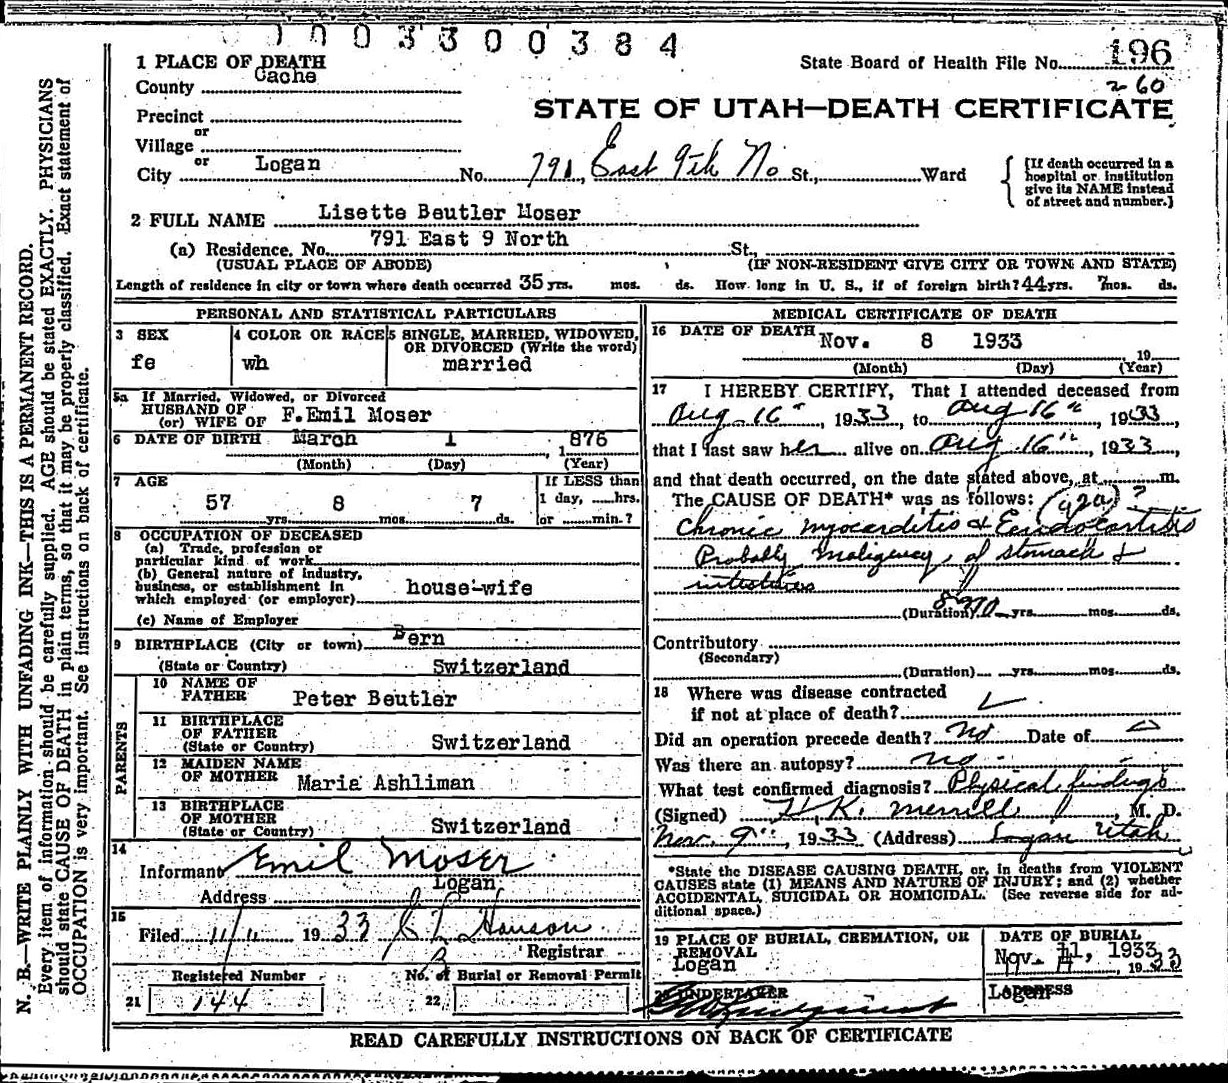 0003300384
1 PLACE OF DEATH
State Board of Health File No. 196
County Cache
260
STATE OF UTAH—DEATH CERTIFICATE
Precinct
or
Village
or
City Logan No. 791, East 9th No St., Ward
{If death occurred in a hospital or institution give its NAME instead of street and number.}
2 FULL NAME Lisette Beutler Moser
(a) Residence. No. 791 East 9 North St.,
(USUAL PLACE OF ABODE) (IF NON-RESIDENT GIVE CITY OR TOWN AND STATE)
Length of residence in city or town where death occurred 35 yrs. mos. ds. How long in U. S., if of foreign birth? 44 yrs. mos. ds.
PERSONAL AND STATISTICAL PARTICULARS
3 SEX
fe
4 COLOR OR RACE
wh
5 SINGLE, MARRIED, WIDOWED, OR DIVORCED (Write the word)
married
5a If Married, Widowed, or Divorced
HUSBAND OF
(or) WIFE OF F.Emil Moser
6 DATE OF BIRTH March 1, 1876
(Month) (Day) (Year)
7 AGE
57 yrs. 8 mos. 7 ds.
If LESS than
1 day, ......hrs.
or ........min.?
8 OCCUPATION OF DECEASED
(a) Trade, profession or
particular kind of work
(b) General nature of industry,
business, or establishment in
which employed (or employer) house-wife
(c) Name of Employer
9 BIRTHPLACE (City or town) Bern
(State or Country) Switzerland
PARENTS
10 NAME OF
FATHER Peter Beutler
11 BIRTHPLACE
OF FATHER
(State or Country) Switzerland
12 MAIDEN NAME
OF MOTHER Maria Ashliman
13 BIRTHPLACE
OF MOTHER
(State or Country) Switzerland
14
Informant Emil Moser
Address Logan
15
Filed 11/11 1933 Hanson
Registrar
Registered Number No. of Burial or Removal Permit
21 144 22
MEDICAL CERTIFICATE OF DEATH
16 DATE OF DEATH Nov. 8 1933
19
(Month) (Day) (Year)
17 I HEREBY CERTIFY, That I attended deceased from
Aug 16", 1933, to Aug 16", 1933
that I last saw her alive on Aug 16th, 1933,
and that death occurred, on the date stated above, at m.
The CAUSE OF DEATH* was as follows: (92a)?
Chronic myocarditis & Endocartitis
Probably maligency of stomach &
intestines
(Duration) yrs. mos. ds.
Contributory
(Secondary)
(Duration) yrs. mos. ds.
18 Where was disease contracted
if not at place of death?
Did an operation precede death? no Date of
Was there an autopsy? no
What test confirmed diagnosis? Physical findings
(Signed) H.K. Merrill, M. D.
Nov. 9th, 1933 (Address) Logan Utah
*State the DISEASE CAUSING DEATH, or, in deaths from VIOLENT
CAUSES state (1) MEANS AND NATURE OF INJURY; and (2) whether
ACCIDENTAL, SUICIDAL OR HOMICIDAL. (See reverse side for additional space.)
19 PLACE OF BURIAL, CREMATION, OR
REMOVAL
Logan
DATE OF BURIAL
Nov. 11, 1933
1933
20 UNDERTAKER
ADDRESS
Logan
READ CAREFULLY INSTRUCTIONS ON BACK OF CERTIFICATE
N. B.—WRITE PLAINLY WITH UNFADING INK—THIS IS A PERMANENT RECORD.
Every item of information should be carefully supplied. AGE should be stated EXACTLY. PHYSICIANS
should state CAUSE OF DEATH in plain terms, so that it may be properly classified. Exact statement of
OCCUPATION is very important. See instructions on back of certificate.